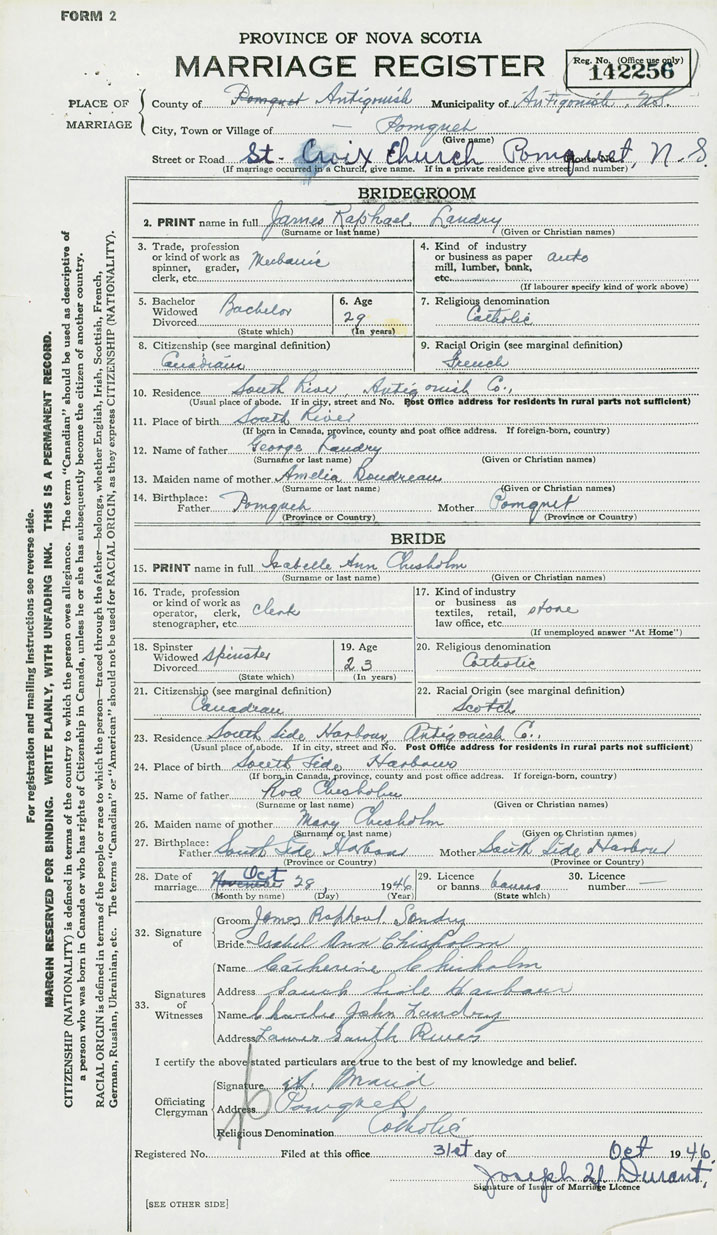 FORM 2
PROVINCE OF NOVA SCOTIA
MARRIAGE REGISTER
Reg. No. (Office use only)
142256
PLACE OF MARRIAGE
County of Pomquet Antigonish Municipality of Antigonish, N.S.
City, Town or Village of — Pomquet
(Give name)
Street or Road St. Croix Church Pomquet, N.S.
(If marriage occurred in a Church, give name. If in a private residence give street and number)
BRIDEGROOM
2. PRINT name in full James Raphael Landry
(Surname or last name) (Given or Christian names)
3. Trade, profession or kind of work as spinner, grader, clerk, etc. Mechanic
4. Kind of industry or business as paper mill, lumber, bank, etc. auto
(If labourer specify kind of work above)
5. Bachelor Widowed Divorced Bachelor
(State which)
6. Age 29
(In years)
7. Religious denomination
Catholic
8. Citizenship (see marginal definition)
Canadian
9. Racial Origin (see marginal definition)
French
10. Residence South River Antigonish Co.,
(Usual place of abode. If in city, street and No. Post Office address for residents in rural parts not sufficient)
11. Place of birth South River
(If born in Canada, province, county and post office address. If foreign-born, country)
12. Name of father George Landry
(Surname or last name) (Given or Christian names)
13. Maiden name of mother Amelia Boudreau
(Surname or last name) (Given or Christian names)
14. Birthplace: Father Pomquet Mother Pomquet
(Province or Country) (Province or Country)
BRIDE
15. PRINT name in full Isabelle Ann Chisholm
(Surname or last name) (Given or Christian names)
16. Trade, profession or kind of work as operator, clerk, stenographer, etc. clerk
17. Kind of industry or business as textiles, retail, law office, etc. store
(If unemployed answer "At Home")
18. Spinster Widowed Divorced Spinster
(State which)
19. Age 23
(In years)
20. Religious denomination
Catholic
21. Citizenship (see marginal definition)
Canadian
22. Racial Origin (see marginal definition)
Scotch
23. Residence South Side Harbour Antigonish Co.,
(Usual place of abode. If in city, street and No. Post Office address for residents in rural parts not sufficient)
24. Place of birth South Side Harbour
(If born in Canada, province, county and post office address. If foreign-born, country)
25. Name of father Rod Chisholm
(Surname or last name) (Given or Christian names)
26. Maiden name of mother Mary Chisholm
(Surname or last name) (Given or Christian names)
27. Birthplace: Father South Side Harbour Mother South Side Harbour
(Province or Country) (Province or Country)
28. Date of marriage November Oct 28, 1946
(Month by name) (Day) (Year)
29. Licence or banns banns
(State which)
30. Licence number —
32. Signature of
Groom James Raphael Landry
Bride Isabel Ann Chisholm
33. Signatures of Witnesses
Name Catherine Chisholm
Address South Side Harbour
Name Charlie John Landry
Address Lower South River
I certify the above stated particulars are true to the best of my knowledge and belief.
Officiating Clergyman
Signature
Address Pomquet
Religious Denomination Catholic
Registered No. Filed at this office 31st day of Oct 1946
Joseph Durant,
Signature of Issuer of Marriage Licence
[SEE OTHER SIDE]
For registration and mailing instructions see reverse side.
MARGIN RESERVED FOR BINDING. WRITE PLAINLY, WITH UNFADING INK. THIS IS A PERMANENT RECORD.
CITIZENSHIP (NATIONALITY) is defined in terms of the country to which the person owes allegiance. The term "Canadian" should be used as descriptive of
a person who was born in Canada or who has rights of Citizenship in Canada, unless he or she has subsequently become the citizen of another country.
RACIAL ORIGIN is defined in terms of the people or race to which the person—traced through the father—belongs, whether English, Irish, Scottish, French,
German, Russian, Ukrainian, etc. The terms "Canadian" or "American" should not be used for RACIAL ORIGIN, as they express CITIZENSHIP (NATIONALITY).